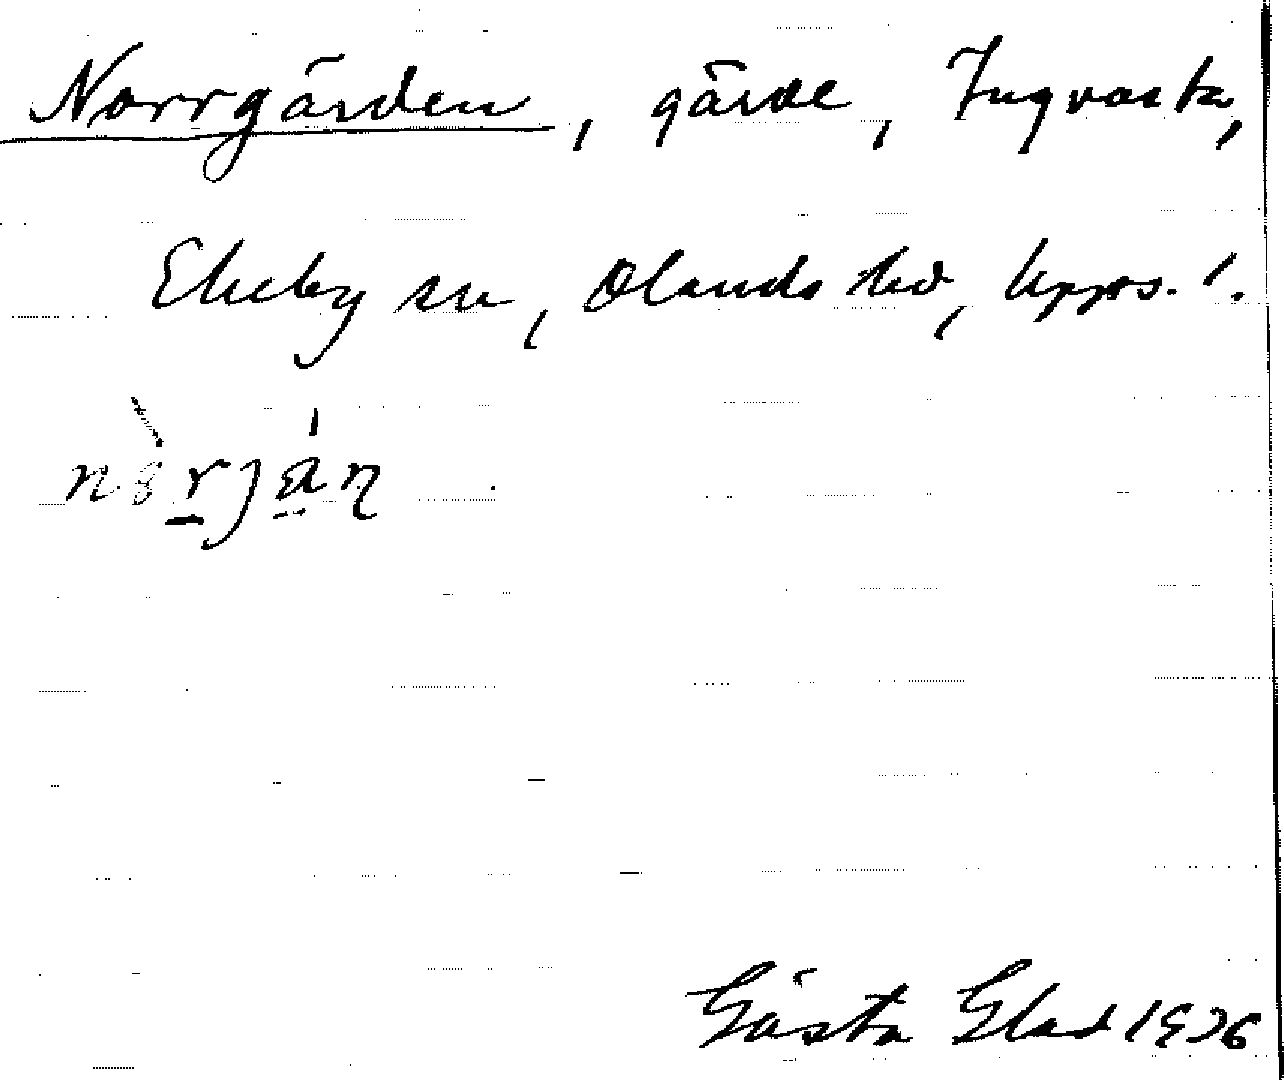 Norrgärden, gärde, Ingvasta,
Ekeby sn, Olands hd, Upps. l.
Gösta Glad 1936